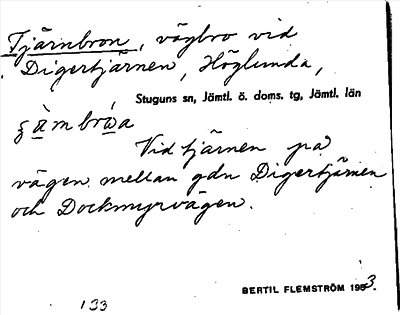 Tjärnbron, vägbro vid
Digertjärnen, Höglunda,
Stuguns sn, Jämtl. ö. doms. tg, Jämtl. län
Vid tjärnen på
vägen mellan gdn Digertjärnen
och Dockmyrvägen.
BERTIL FLEMSTRÖM 1953.
133